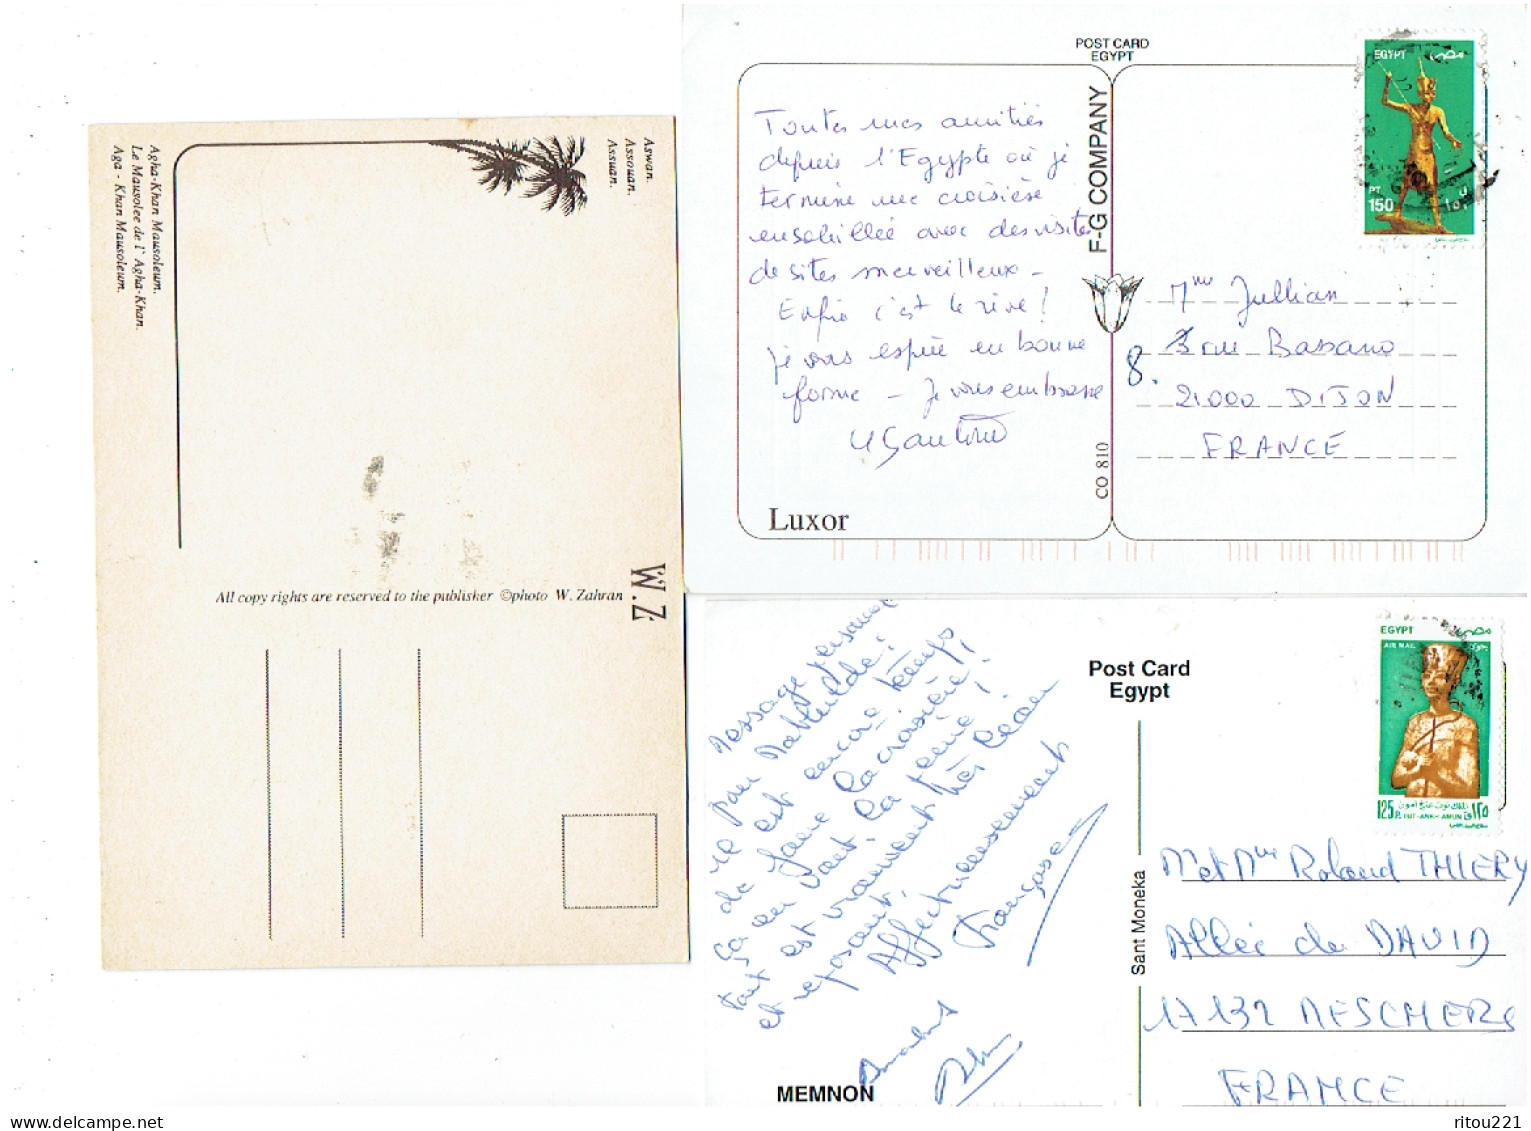 Aswan.
Assouan.
Assuan.
Agha-Khan Mausoleum.
Le Mausolee de l' Agha-Khan.
Aga - Khan Mausoleum.
All copy rights are reserved to the publisker ©photo W. Zahran
W.Z
POST CARD
EGYPT
F-G COMPANY
CO 810
Toutes mes amitiés
depuis l'Egypte où je
termine une croisière
ensoleillée avec des visites
de sites merveilleux -
Enfin c'est le rêve!
Je vous espère en bonne
forme - Je vous embrasse
Luxor
EGYPT مصر
PT
150
ق
١٥٠
Mme Jullian
8. 3 rue Bassano
21000 DIJON
FRANCE
Post Card
Egypt
Message personnel
pour Mathilde:
ne est encore temps
de faire la croisière!
ça en vaut la peine!
tout est vraiment très beau
et reposant.
Affectueusement
Françoise
MEMNON
Sant Moneka
EGYPT مصر
AIR MAIL
125 P.
TUT-ANKH-AMUN
توت عنخ آمون
١٢٥
M et Mme Roland THIERY
Allée de DAVID
17132 MESCHERS
FRANCE
ritou221